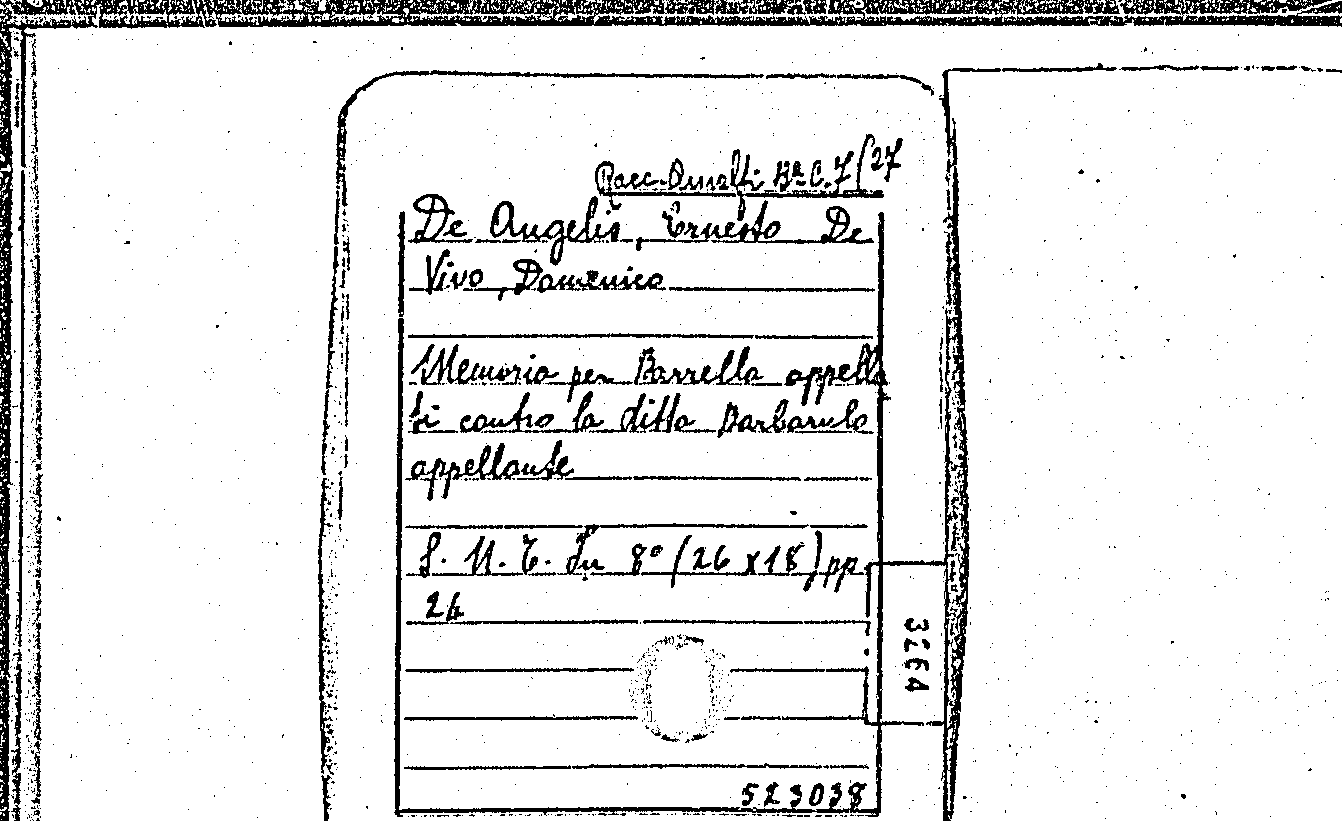 Racc. Amalfi Bª C. 7/27
De Angelis, Ernesto De
Vivo, Domenico
Memoria per Barrella appella
ti contro la ditta Barbarulo
appellante
S. N. T. In 8° (26 x 18) pp.
24
3264
523038